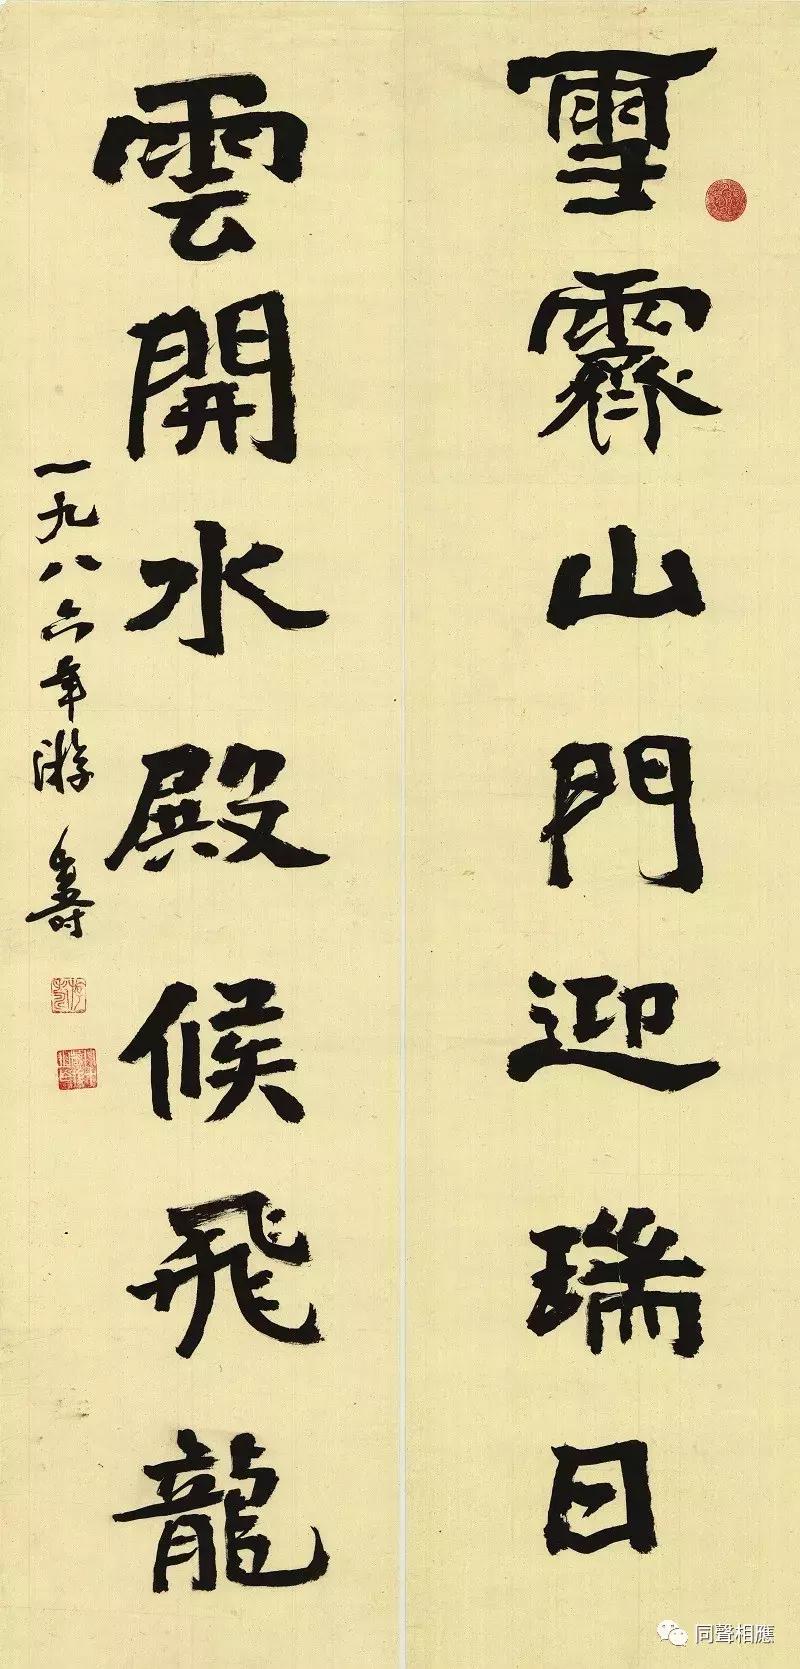 雪霽山門迎瑞日
雲開水殿候飛龍
一九八六年游壽
同聲相應